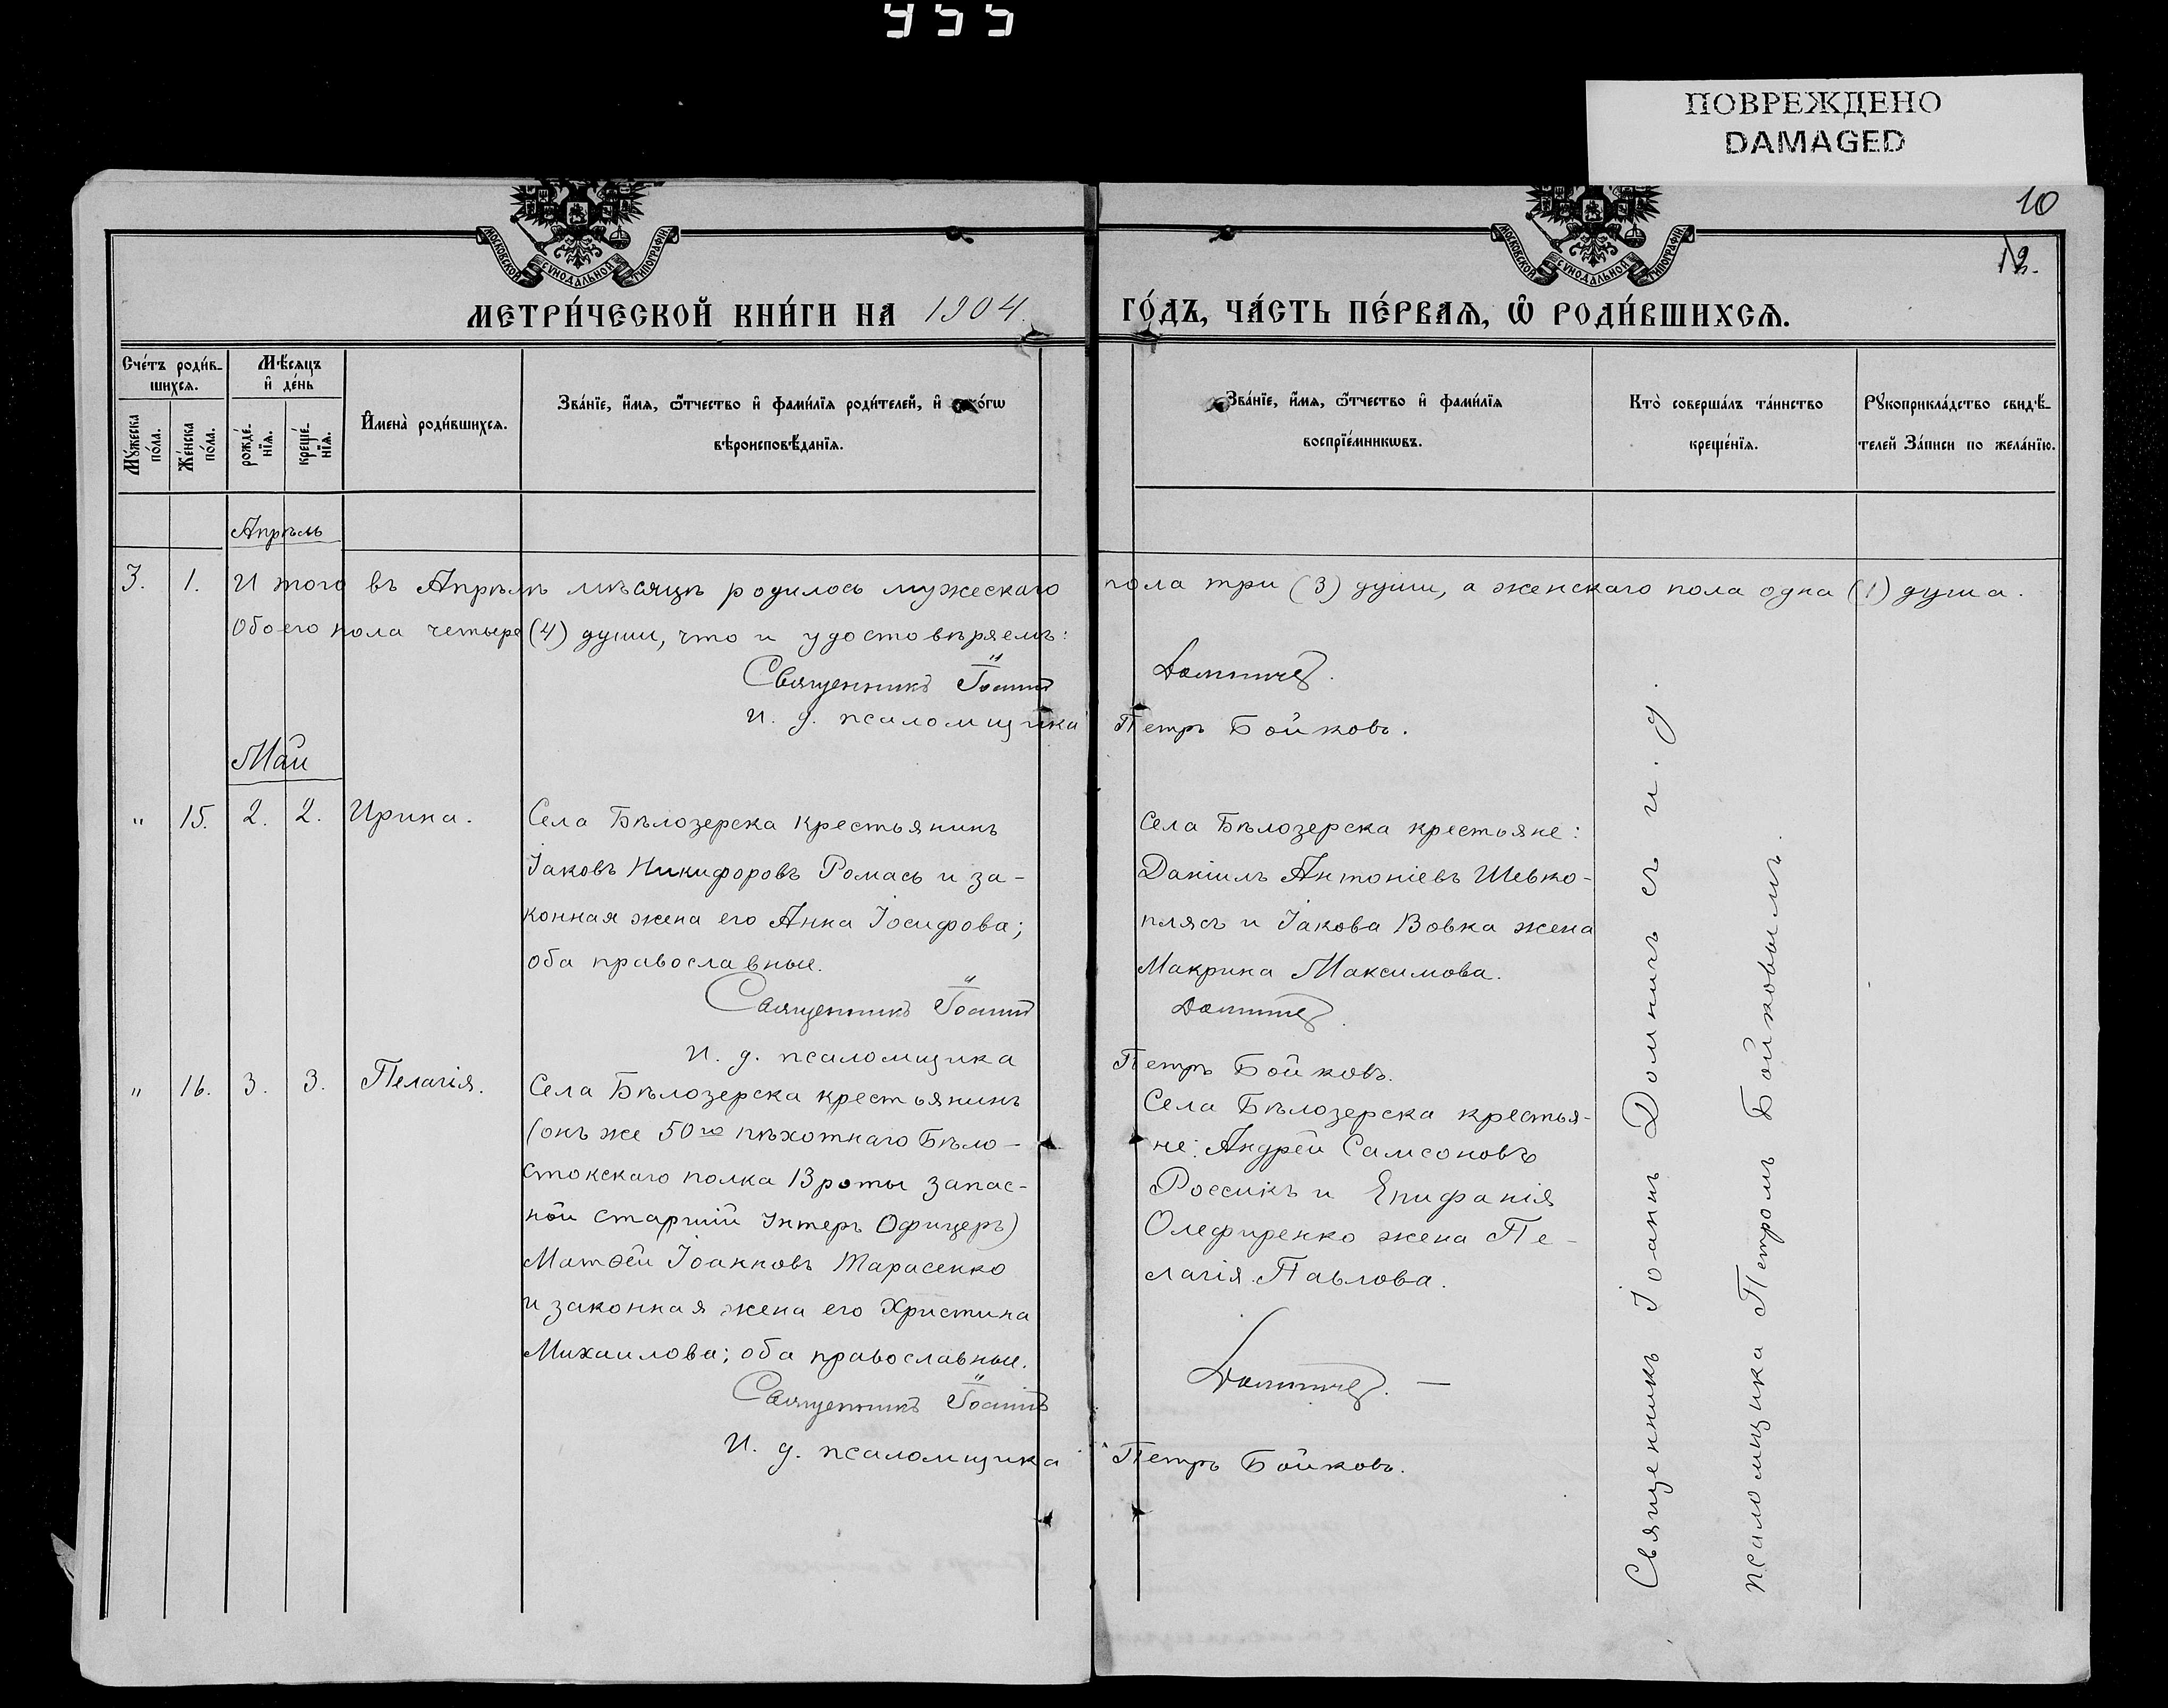 955
ПОВРЕЖДЕНО
DAMAGED
10
12.
МОСКОВСКОЙ СѴНОДАЛЬНОЙ ТИПОГРАФІИ
МОСКОВСКОЙ СѴНОДАЛЬНОЙ ТИПОГРАФІИ
МЕТРИ́ЧЕСКОЙ КНИ́ГИ НА 1904. ГО́ДЪ, ЧА́СТЬ ПЕ́РВАѦ, Ѡ҆ РОДИ́ВШИХСѦ.
Сче́тъ роди́в-
шихсѧ.
Мꙋ́жеска
по́ла.
Же́нска
по́ла.
Мѣ́сѧцъ
и҆ де́нь
рожде́-
нїѧ.
креще́-
нїѧ.
И҆мена̀ роди́вшихсѧ.
Зва́нїе, и҆́мѧ, ѻ҆́тчество и҆ фами́лїѧ роди́телей, и҆ како́гѡ
вѣроисповѣ́данїѧ.
Зва́нїе, и҆́мѧ, ѻ҆́тчество и҆ фами́лїѧ
воспрїе́мникѡвъ.
Кто̀ соверша́лъ та́инство
креще́нїѧ.
Рꙋкоприкла́дство свидѣ́-
телей За́писи по жела́нїю.
Апрѣль
3. 1. И того въ Апрѣлѣ мѣсяцѣ родилось мужескаго пола три (3) души, а женскаго пола одна (1) душа.
Обоего пола четыре (4) души, что и удостовѣряемъ:
Священникъ Іоаннъ Домничъ.
И. д. псаломщика Петръ Бойковъ.
Май
" 15. 2. 2. Ирина.
Села Бѣлозерска крестьянинъ
Іаковъ Никифоровъ Ромась и за-
конная жена его Анна Іосифова;
оба православные.
Села Бѣлозерска крестьяне:
Даніилъ Антоніевъ Шевко-
плясъ и Іакова Вовка жена
Макрина Максимова.
Священникъ Іоаннъ Домничъ.
И. д. псаломщика Петръ Бойковъ.
" 16. 3. 3. Пелагія.
Села Бѣлозерска крестьянинъ
(онъ же 50го пѣхотнаго Бѣло-
стокскаго полка 13 роты запас-
ной старшій Унтеръ Офицеръ)
Матѳей Іоанновъ Тарасенко
и законная жена его Христина
Михаилова; оба православные.
Села Бѣлозерска крестья-
не: Андрей Самсоновъ
Россикъ и Епифанія
Олефиренко жена Пе-
лагія Павлова.
Священникъ Іоаннъ Домничъ.
И. д. псаломщика Петръ Бойковъ.
Священникъ Іоаннъ Домничъ съ и. д.
псаломщика Петромъ Бойковымъ.